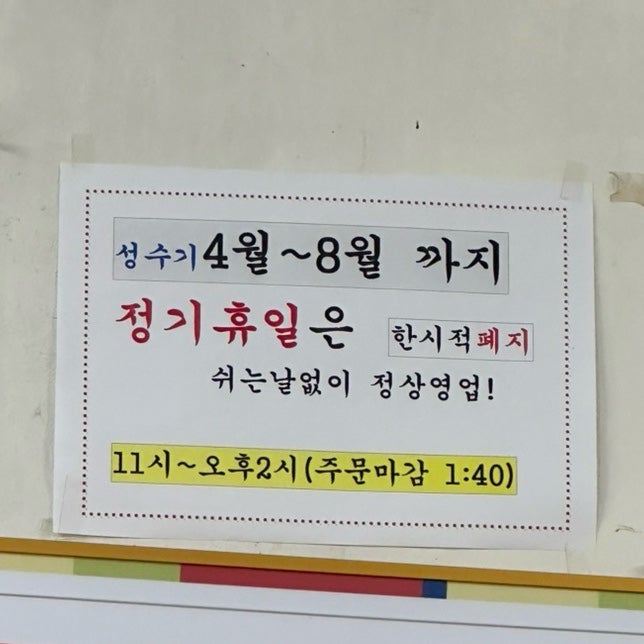 성수기4월~8월 까지
정기휴일은 한시적폐지
쉬는날없이 정상영업!
11시~오후2시(주문마감 1:40)